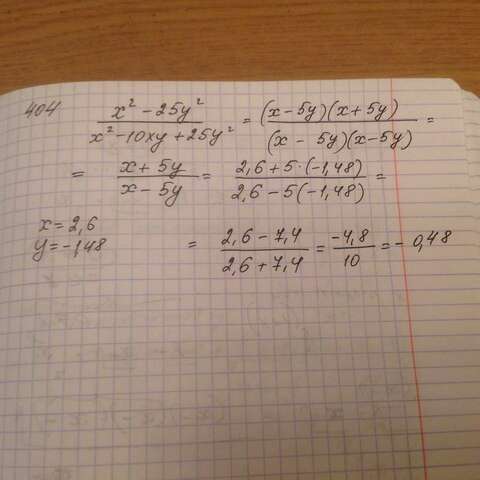 404 (x² - 25y²)/(x² - 10xy + 25y²) = ((x - 5y)(x + 5y))/((x - 5y)(x - 5y)) =
= (x + 5y)/(x - 5y) = (2,6 + 5·(-1,48))/(2,6 - 5(-1,48)) =
x = 2,6
y = -1,48 = (2,6 - 7,4)/(2,6 + 7,4) = -4,8/10 = -0,48